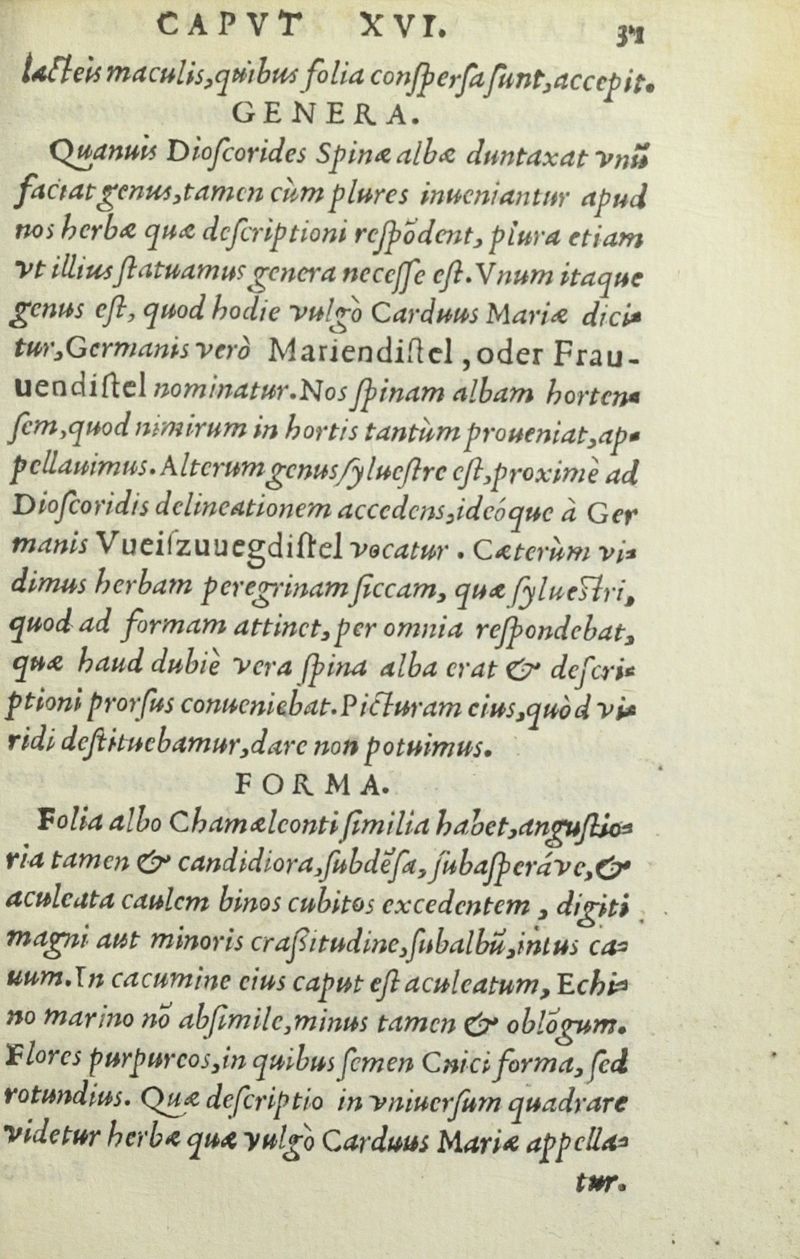 CAPVT XVI. 31
lacteis maculis, quibus folia conſperſa ſunt, accepit.
GENERA.
Quanuis Dioſcorides Spinæ albæ duntaxat vnū
faciat genus, tamen cùm plures inueniantur apud
nos herbæ quæ deſcriptioni reſpōdent, plura etiam
vt illius ſtatuamus genera neceſſe eſt. Vnum itaque
genus eſt, quod hodie vulgò Carduus Mariæ dici-
tur, Germanis verò Mariendiſtel, oder Frau-
uendiſtel nominatur. Nos ſpinam albam horten-
ſem, quod nimirum in hortis tantùm proueniat, ap-
pellauimus. Alterum genus ſylueſtre eſt, proximè ad
Dioſcoridis delineationem accedens, ideóque à Ger
manis Vueiſzuuegdiſtel vocatur. Cæterùm vi-
dimus herbam peregrinam ſiccam, quæ ſylueſtri,
quod ad formam attinet, per omnia reſpondebat,
quæ haud dubiè vera ſpina alba erat & deſcri-
ptioni prorſus conueniebat. Picturam eius, quòd vi-
ridi deſtituebamur, dare non potuimus.
FORMA.
Folia albo Chamæleonti ſimilia habet, anguſtio-
ria tamen & candidiora, ſubdēſa, ſubaſperáve, &
aculeata caulem binos cubitos excedentem, digiti
magni aut minoris craſsitudine, ſubalbū, intus ca-
uum. In cacumine eius caput eſt aculeatum, Echi-
no marino nō abſimile, minus tamen & oblōgum.
Flores purpureos, in quibus ſemen Cnici forma, ſed
rotundius. Quæ deſcriptio in vniuerſum quadrare
videtur herbæ quæ vulgò Carduus Mariæ appella-
tur.